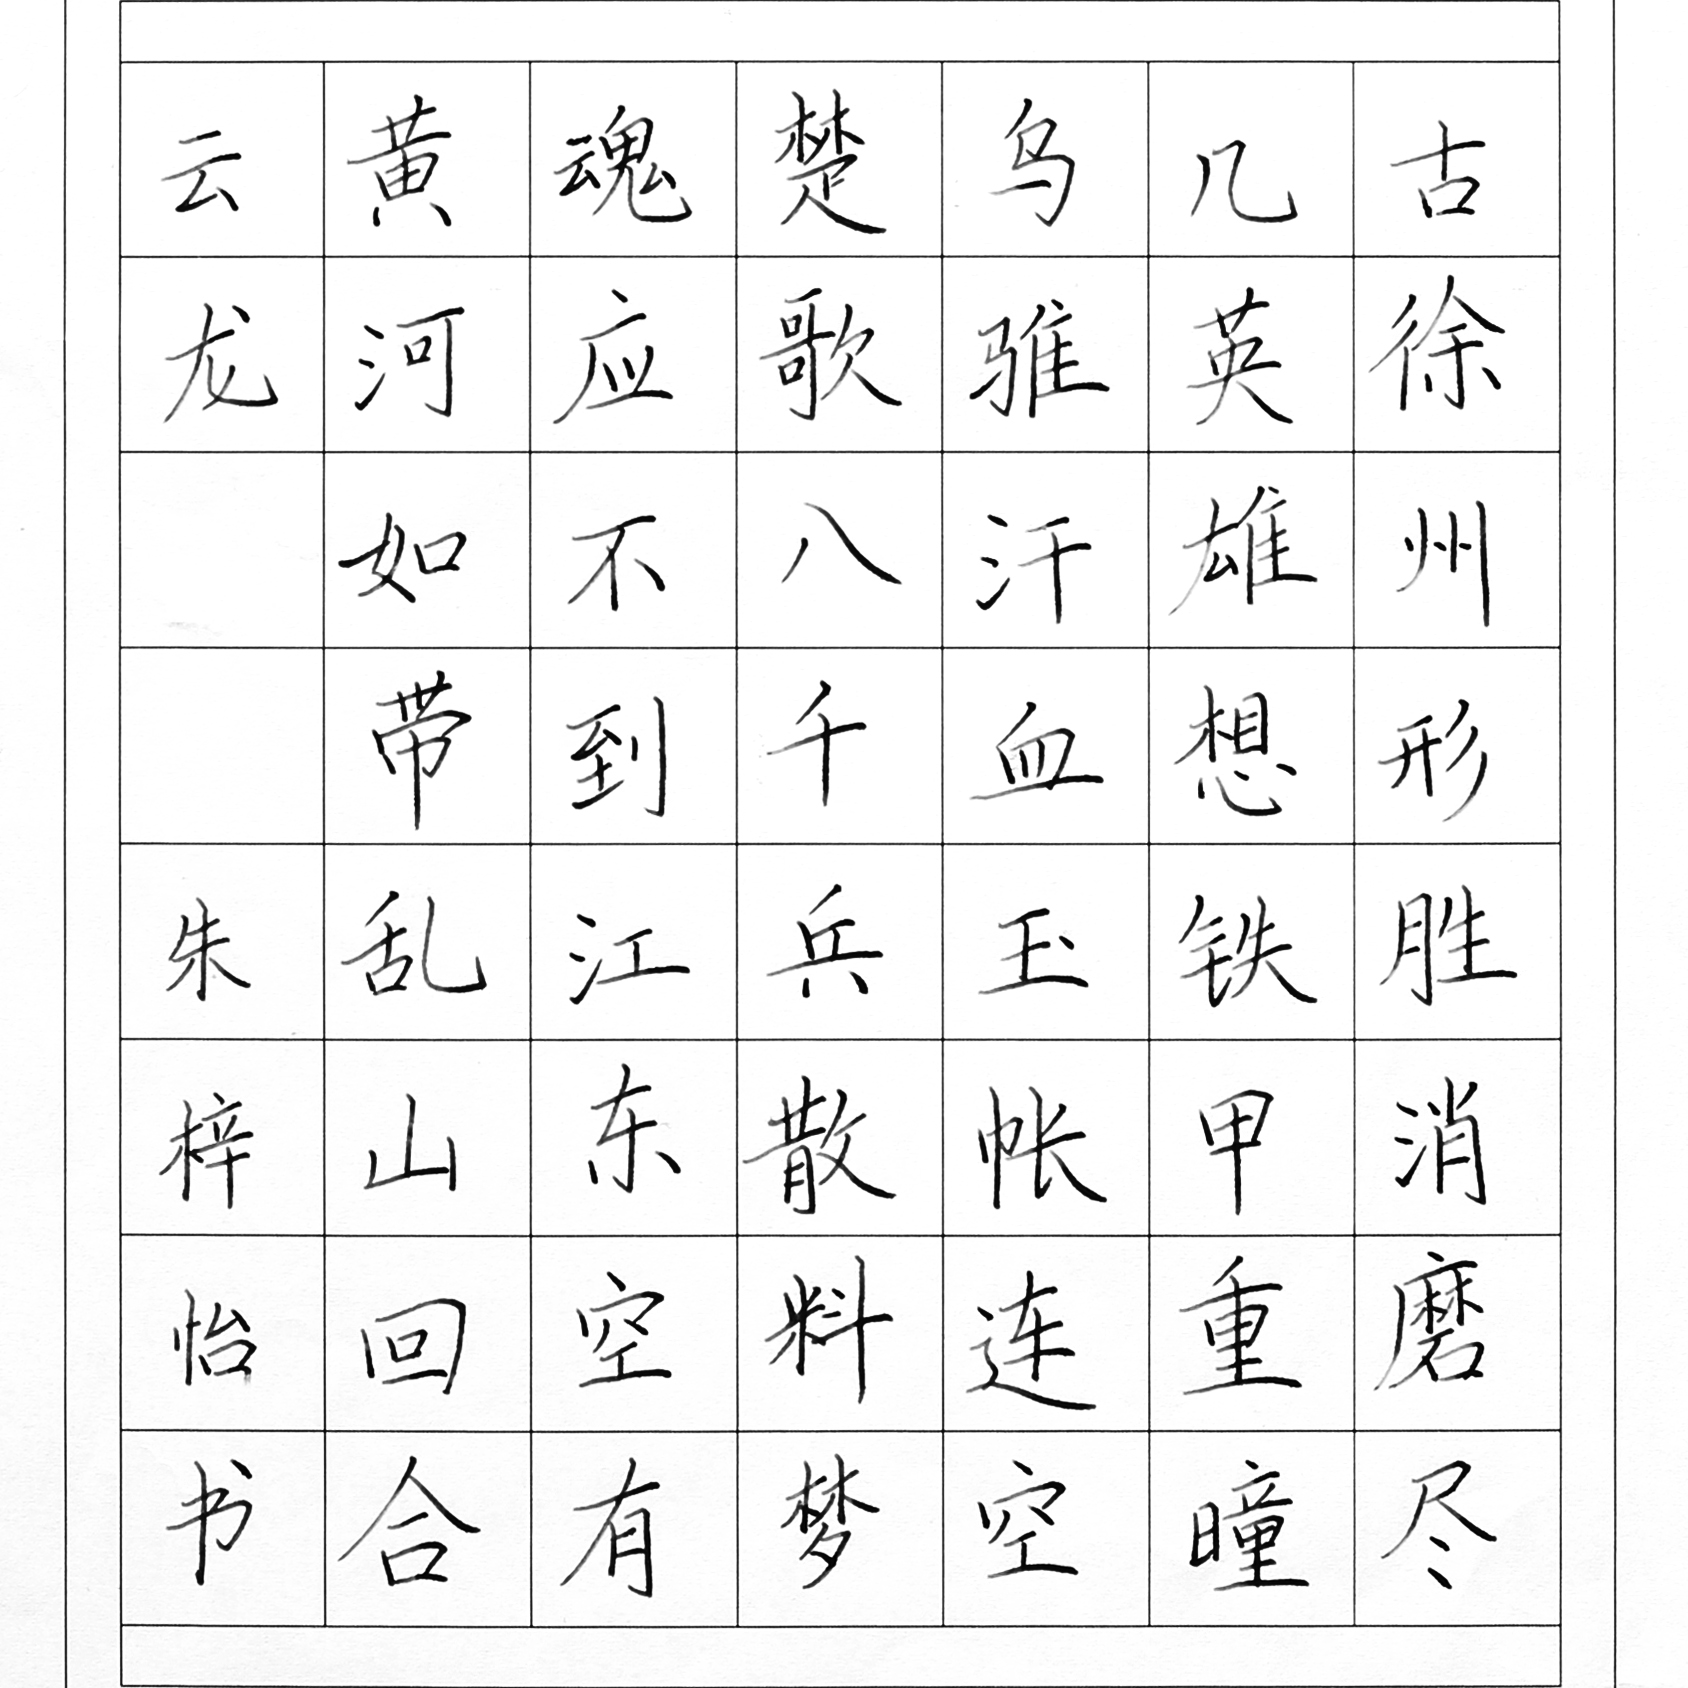 古徐州形胜消磨尽
几英雄想铁甲重瞳
乌骓汗血玉帐连空
楚歌八千兵散料梦
魂应不到江东空有
黄河如带乱山回合
云龙 朱梓怡书